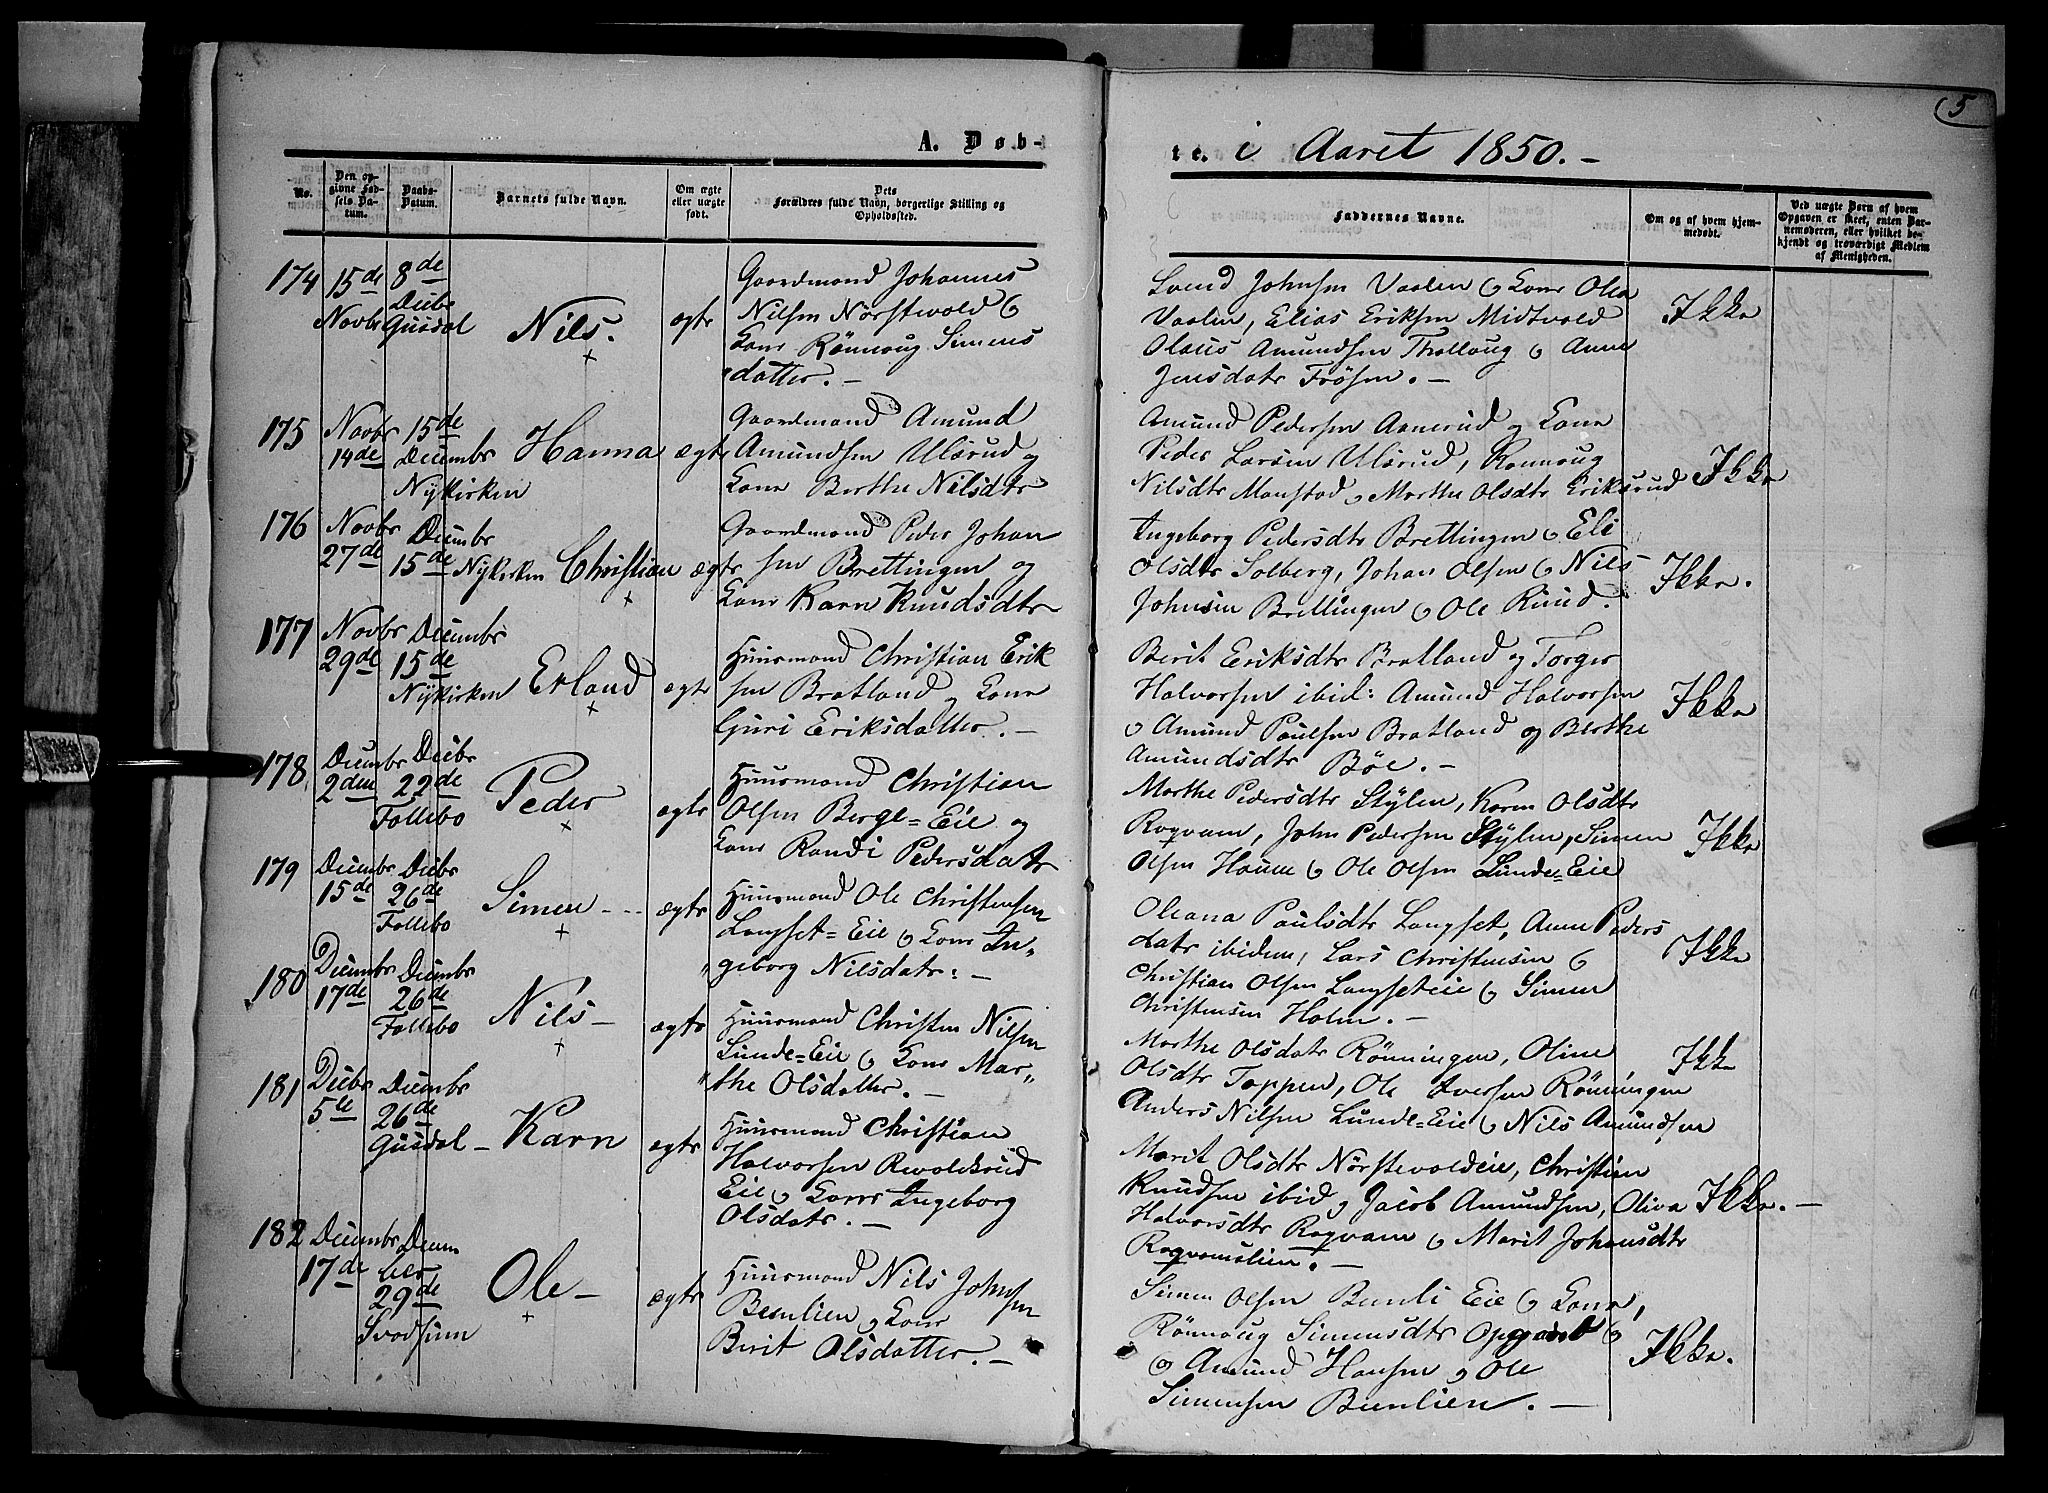 5
A. Døb-
te. i Aaret 1850. -
No.
Den op-
givne Fød-
sels Da-
tum.
Daabs-
Datum.
Barnets fulde Navn.
Om ægte
eller uægte
født.
Dets
Forældres fulde Navn, borgerlige Stilling og
Opholdssted.
Faddernes Navne.
Om og af hvem hjem-
medøbt.
Ved uægte Børn af hvem
Opgaven er skeet, enten Bar-
nemoderen, eller hvilket be-
kjendt og troværdigt Medlem
af Menigheden.
174
15de
Novbr
8de
Decbr
Gusdal
Nils.
+
ægte
Gaardmand Johannes
Nilsen Nørstevold &
Kone Rønnoug Simens
datter. -
Svend Johnsen Vaalen & Kone Olea
Vaalen, Elias Eriksen Midtvold
Olaus Amundsen Thallaug & Anne
Jensdatr Frösen. -
Ikke
175
Novbr
14de
15de
Decembr
Nykirken
Hanna
ægte
Gaardmand Amund
Amundsen Ulsrud og
Kone Berthe Nilsdtr
Amund Pedersen Aanerud og Kone
Peder Larsen Ulsrud, Rønnoug
Nilsdtr Monstad & Marthe Olsdtr Eriksrud
Ikke
176
Novbr
27de
Decembr
15de Nykirken
Christian
+
ægte
Gaardmand Peder Johan
sen Brettingen og
Kone Karn Knudsdtr
Ingeborg Pedersdtr Brettingen & Eli
Olsdtr Solberg, Johan Olsen & Nils
Johnsen Brettingen & Ole Ruud.
Ikke.
177
Novbr
29de
Decembr
15de
Nykirken
Erland
+
ægte
Huusmand Christian Erik
sen Bratland og Kone
Guri Eriksdatter. -
Berit Eriksdtr Bratland og Torger
Halvorsen ibid: Amund Halvorsen
& Amund Paulsen Bratland og Berthe
Amundsdtr Böe. -
Ikke
178
Decembr
2den
Decbr
22de
Follebo
Peder
+
ægte
Huusmand Christian
Olsen Berge=Eie og
Kone Randi Pedersdatr
Marthe Pedersdtr Stylen, Karen Olsdtr
Rogvam, John Pedersen Stylen, Simen
Olsen Haum & Ole Olsen Lunde=Eie
Ikke
179
Decembr
15de
Decbr
26de
Follebo
Simen - - -
+
ægte
Huusmand Ole Christensen
Langset=Eie & Kone In„
„geborg Nilsdatr: -
Oleana Paulsdtr Langset, Anne Peders
datr ibidem, Lars Christensen &
Christian Olsen Langseteie & Simen
Christensen Holm. -
Ikke
180
Decembr
17de
Decembr
26de
Follebo
Nils -
+
ægte
Huusmand Christen Nilsen
Lunde=Eie & Kone Mar„
„the Olsdatter. -
Marthe Olsdatr Rönningen, Oline
Olsdtr Toppen, Ole Iversen Rönningen
Anders Nilsen Lunde=Eie & Nils Amundsen
Ikke
181
Decbr
5te
Decembr
26de
Gusdal -
Karn
ægte
Huusmand Christian
Halvorsen Revoldsrud
Eie & Kone Ingeborg
Olsdatr. -
Marit Olsdtr Nörstevoldeie, Christian
Knudsen ibid & Jacob Amundsen, Oliva
Halvorsdtr Rogvam & Marit Johansdtr
Rogvamslien. -
Ikke. -
182
Decembr
17de
Decem
ber
29de
Svadsum
Ole -
+
ægte
Huusmand Nils Johnsen
Beenlien & Kone
Berit Olsdatter. -
Simen Olsen Benli Eie & Kone,
Rönnoug Simensdtr Opgaard &
& Amund Hansen & Ole
Simensen Beenlien. -
Ikke.